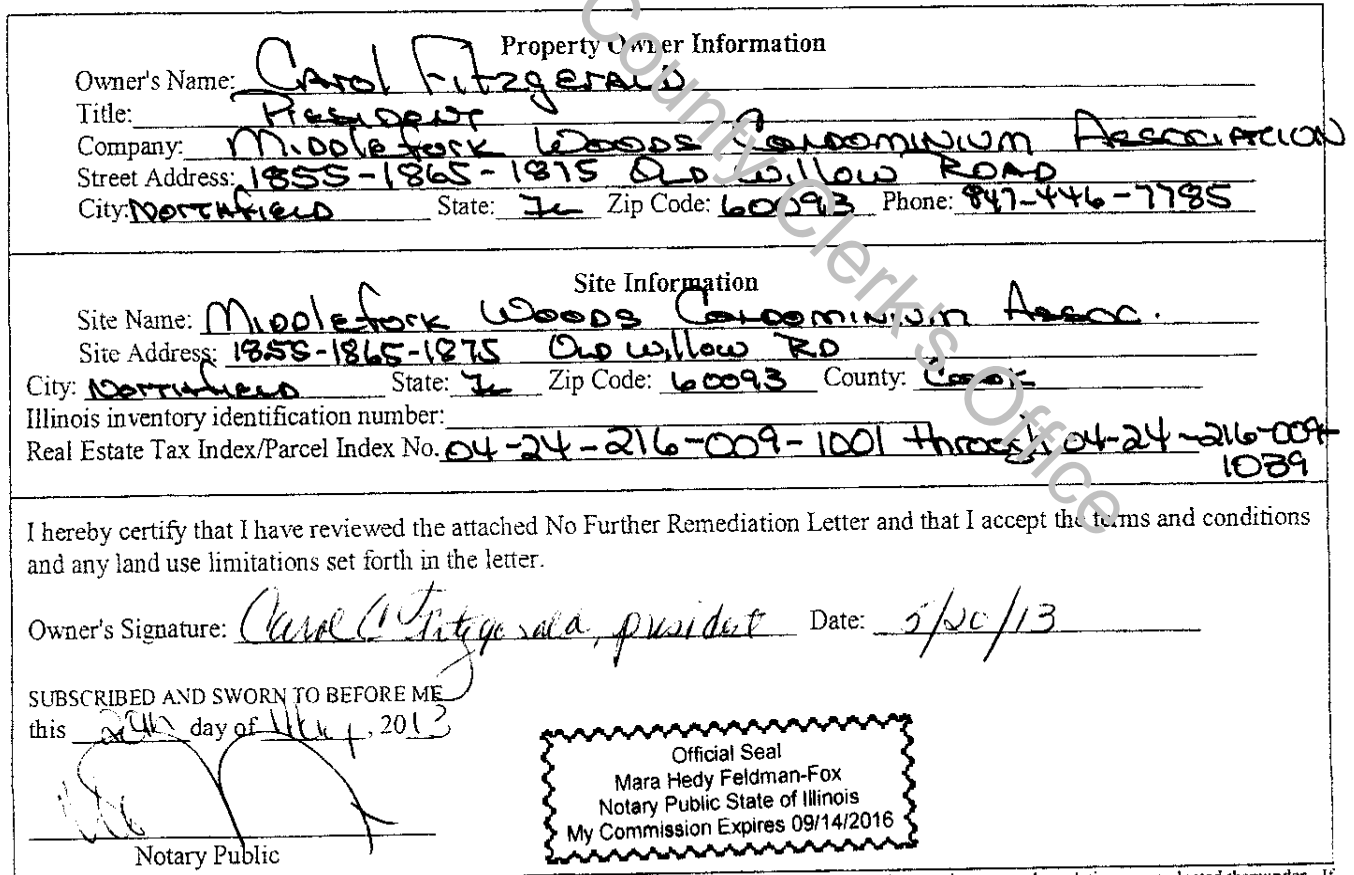 Property Owner Information
Owner's Name: Carol Fitzgerald
Title: President
Company: Middlefork Woods Condominium Association
Street Address: 1855-1865-1875 Old Willow Road
City: Northfield State: IL Zip Code: 60093 Phone: 847-446-7785
Site Information
Site Name: Middlefork Woods Condominium Assoc.
Site Address: 1855-1865-1875 Old Willow RD
City: Northfield State: IL Zip Code: 60093 County: Cook
Illinois inventory identification number:
Real Estate Tax Index/Parcel Index No. 04-24-216-009-1001 through 04-24-216-009-
1039
County Clerk's Office
I hereby certify that I have reviewed the attached No Further Remediation Letter and that I accept the terms and conditions
and any land use limitations set forth in the letter.
Owner's Signature: Carol C Fitzgerald, president Date: 5/20/13
SUBSCRIBED AND SWORN TO BEFORE ME
this day of May, 2013
Notary Public
Official Seal
Mara Hedy Feldman-Fox
Notary Public State of Illinois
My Commission Expires 09/14/2016